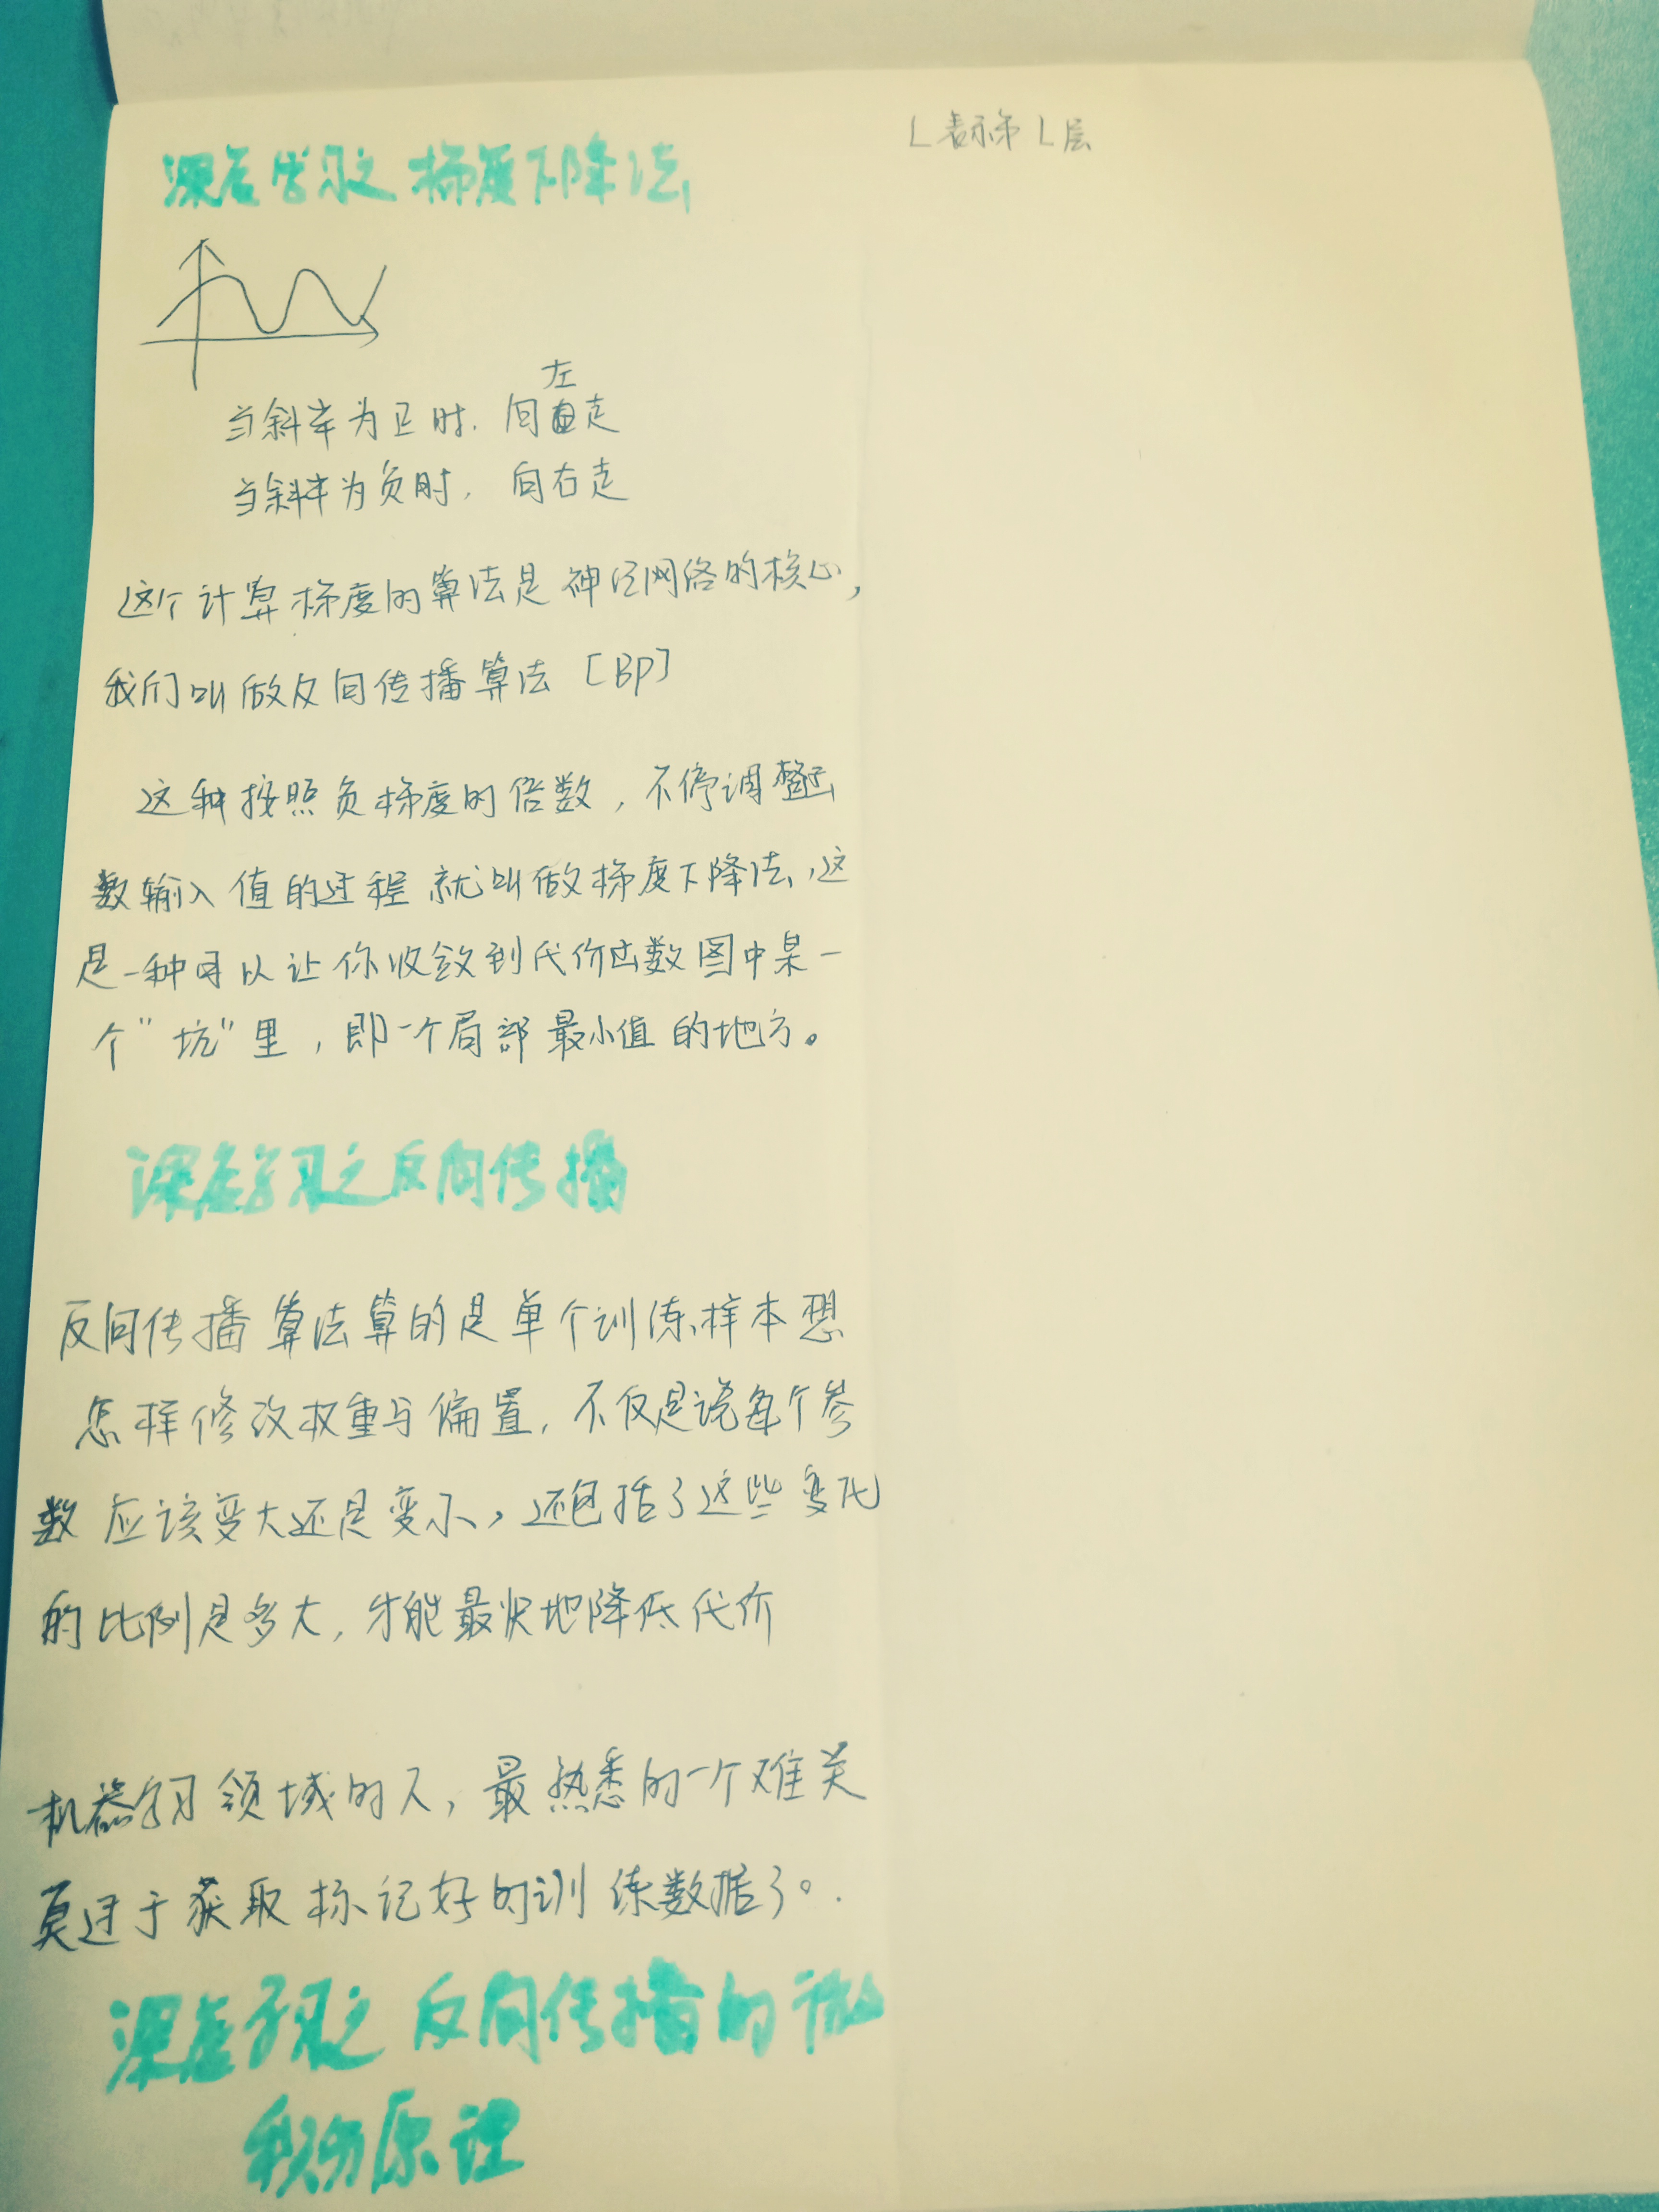 深度学习之 梯度下降法
当斜率为正时. 向左走
当斜率为负时, 向右走
这个计算梯度的算法是神经网络的核心,
我们叫做反向传播算法 [BP]
这种按照负梯度的倍数,不停调整函
数输入值的过程就叫做梯度下降法,这
是一种可以让你收敛到代价函数图中某一
个"坑"里,即一个局部最小值的地方。
深度学习之反向传播
反向传播算法算的是单个训练样本想
怎样修改权重与偏置,不仅是说每个参
数应该变大还是变小,还包括了这些变化
的比例是多大,才能最快地降低代价
机器学习领域的人,最熟悉的一个难关
莫过于获取标记好的训练数据了。
深度学习之反向传播的微
积分原理
L表示第L层